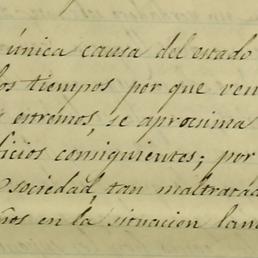 única causa del estado
los tiempos por que ven
estremos, se aprocsima
ficios consiguientes; por
sociedad, tan maltratad
ños en la situacion lam